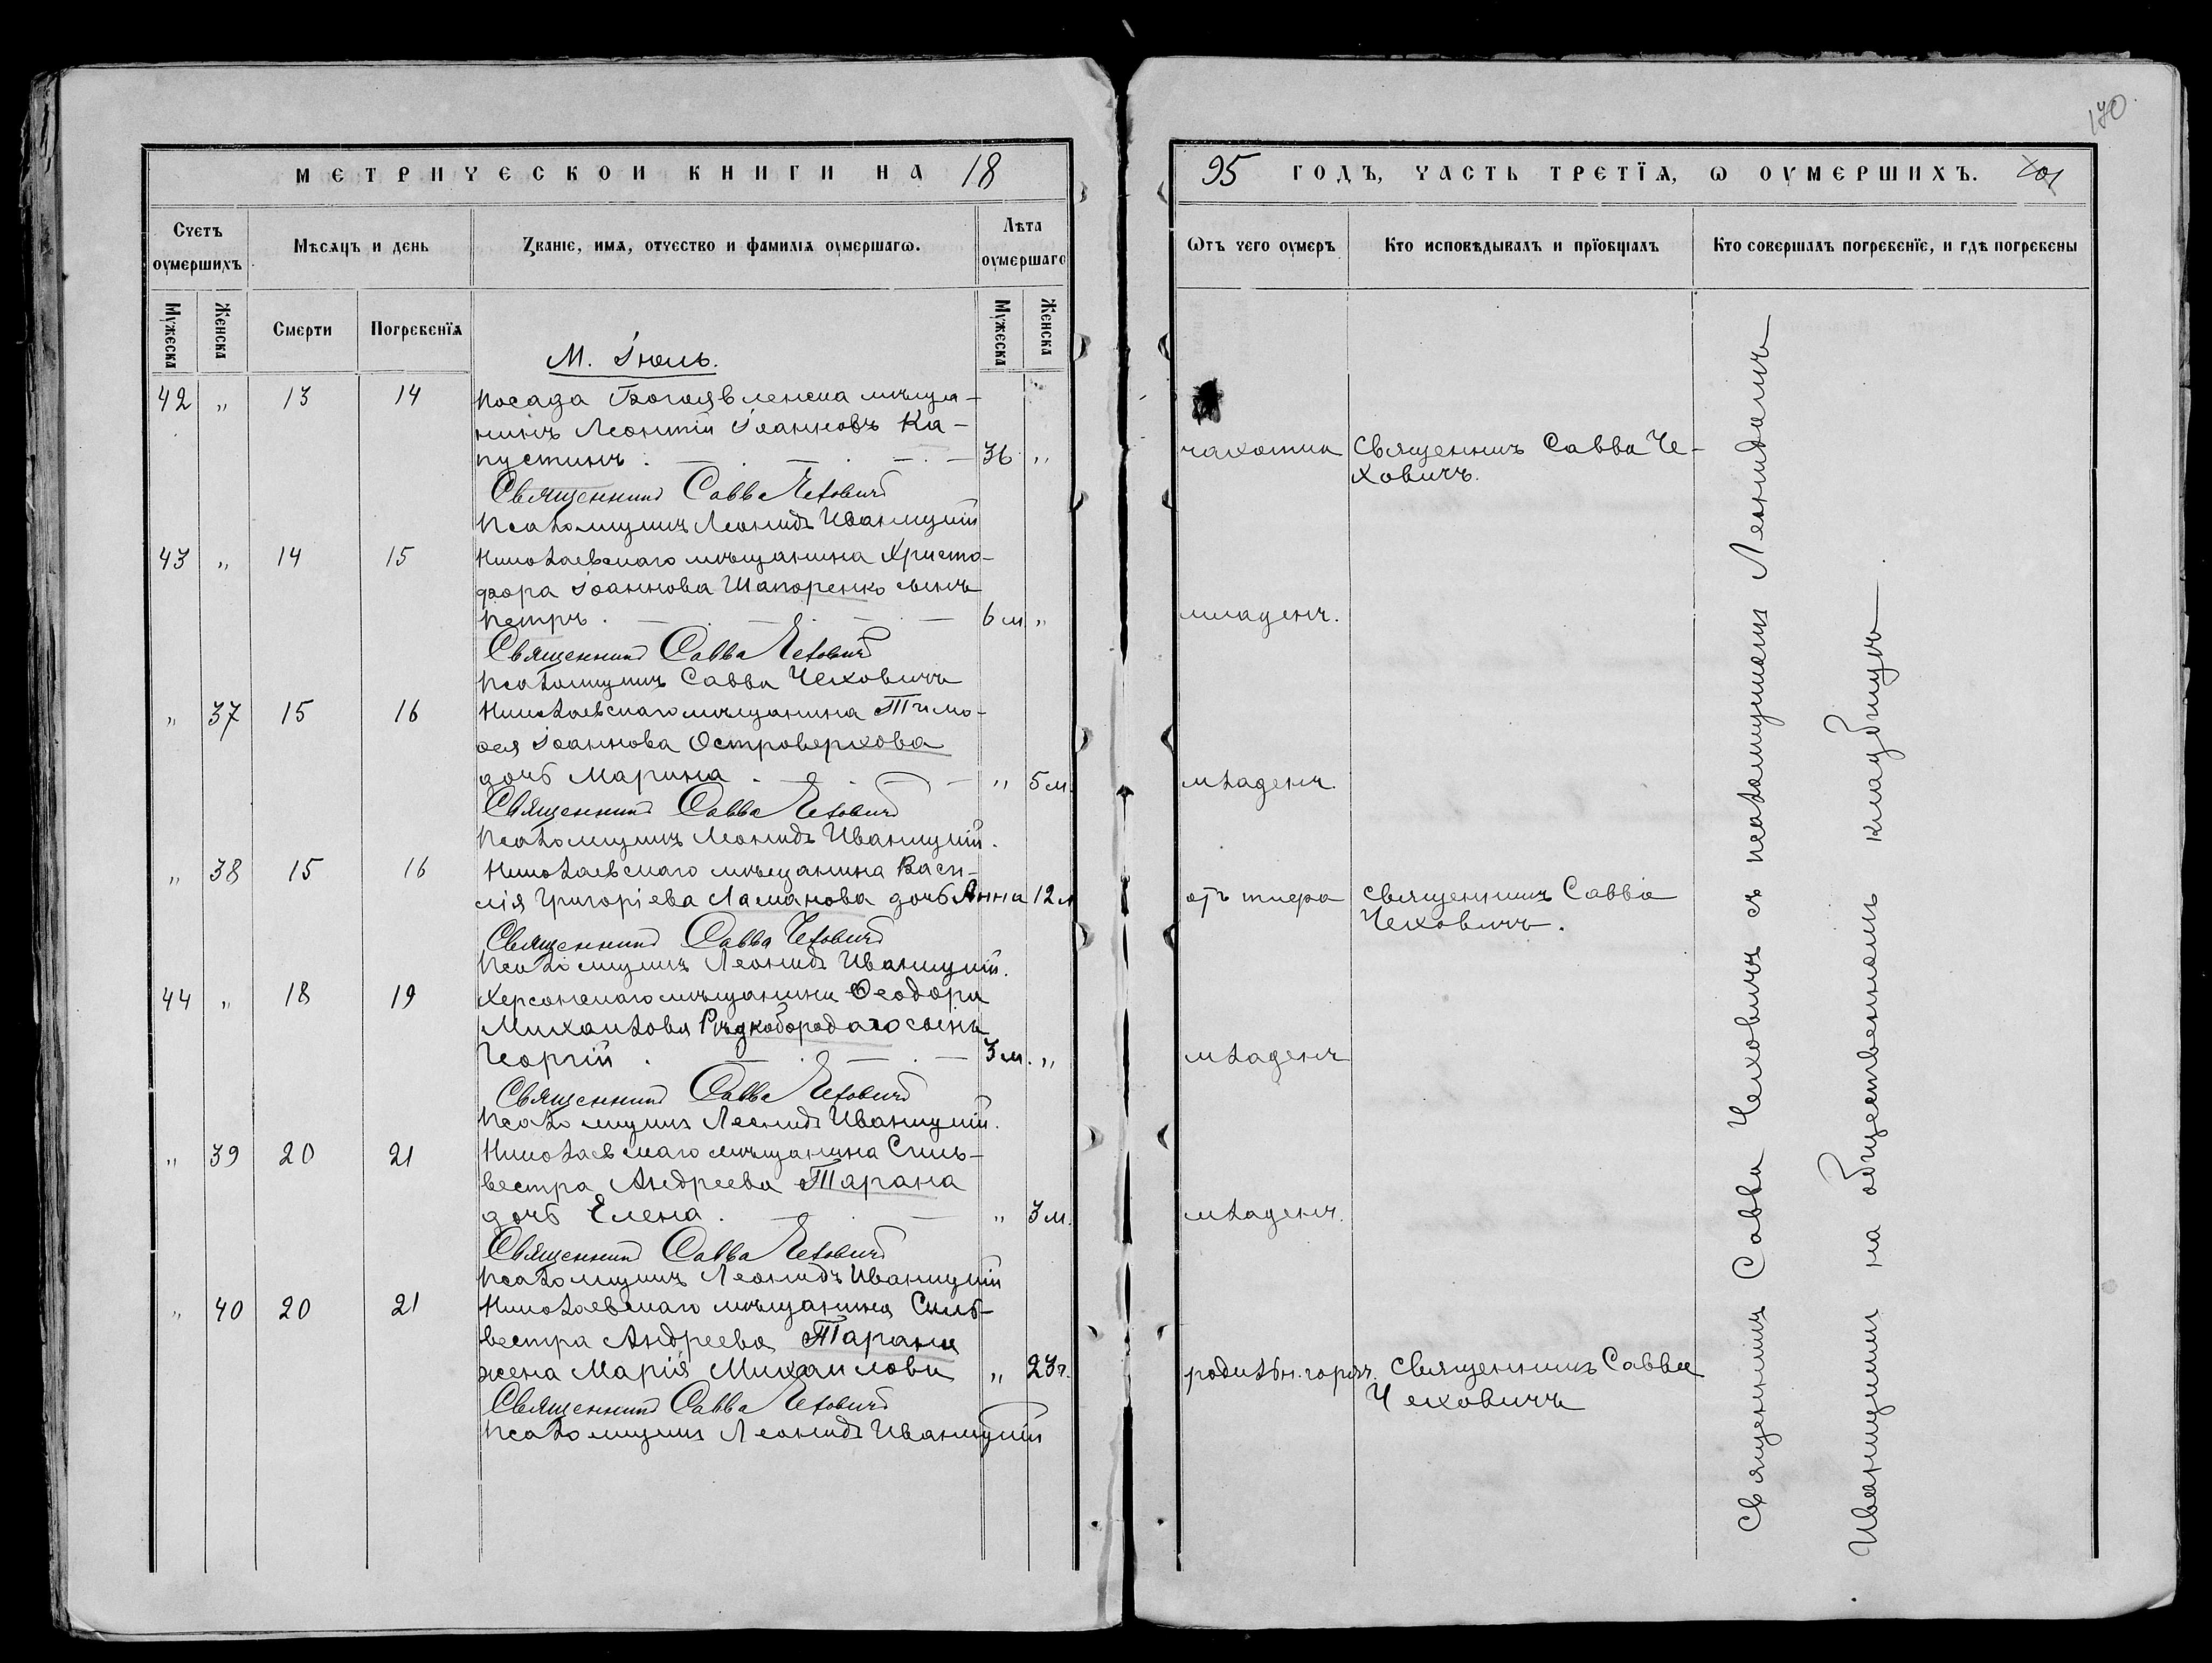 170.
МЕТРИЧЕСКОЙ КНИГИ НА 18
95 ГОДЪ, ЧАСТЬ ТРЕТЇЯ, Ѡ ОУМЕРШИХЪ. 201
Счетъ оумершихъ
Мѣсяцъ и день
Званіе, имя, отчество и фамилія оумершагѡ.
Лѣта оумершаго
Мужеска
Женска
Смерти
Погребенїя
Мужеска
Женска
Ѿтъ чего оумеръ
Кто исповѣдывалъ и прїобщалъ
Кто совершалъ погребенїе, и гдѣ погребены
М. Іюль.
42 „ 13 14 Посада Богоявленска мѣща-
нинъ Леонтій Іоанновъ Ка-
пустинъ . — . — . — . — 36 „ чахотка Священникъ Савва Че-
ховичъ.
Священникъ Савва Чеховичъ
Псаломщикъ Леонидъ Иваницкій
43 „ 14 15 Николаевскаго мѣщанина Христо-
фора Іоаннова Шапоренко сынъ
Петръ . — . — . — . — 6 м „ младенч.
Священникъ Савва Чеховичъ
Псаломщикъ Савва Чеховичъ
„ 37 15 16 Николаевскаго мѣщанина Тимо-
ѳея Іоаннова Островерхова
дочь Марина . — . — — „ 5 м. младенч.
Священникъ Савва Чеховичъ
Псаломщикъ Леонидъ Иваницкій.
„ 38 15 16 Николаевскаго мѣщанина Васи-
лія Григоріева Ламанова дочь Анна 12 л отъ тифа Священникъ Савва
Чеховичъ.
Священникъ Савва Чеховичъ
Псаломщикъ Леонидъ Иваницкій.
44 „ 18 19 Херсонскаго мѣщанина Ѳеодора
Михаилова Рѣдкобородаго сынъ
Георгій . — . — . — 3 м. „ младенч
Священникъ Савва Чеховичъ
Псаломщикъ Леонидъ Иваницкій.
„ 39 20 21 Николаевскаго мѣщанина Силь-
вестра Андреева Тарана
дочь Елена . — . — „ 3 м. младенч.
Священникъ Савва Чеховичъ
Псаломщикъ Леонидъ Иваницкій
„ 40 20 21 Николаевскаго мѣщанина Силь-
вестра Андреева Тарана
жена Марія Михаилова „ 23 г. родильн. горяч. Священникъ Савва
Чеховичъ
Священникъ Савва Чеховичъ
Псаломщикъ Леонидъ Иваницкій
Священникъ Савва Чеховичъ съ псаломщикомъ Леонидомъ
Иваницкимъ на общественномъ кладбищѣ